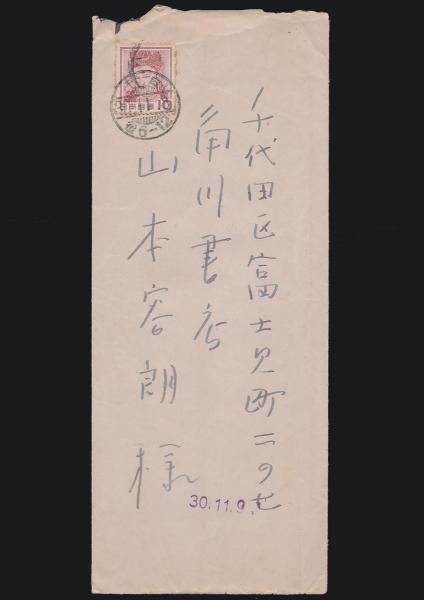 千代田区富士見町二の七
角川書店
山本容朗様
10
30.11.9